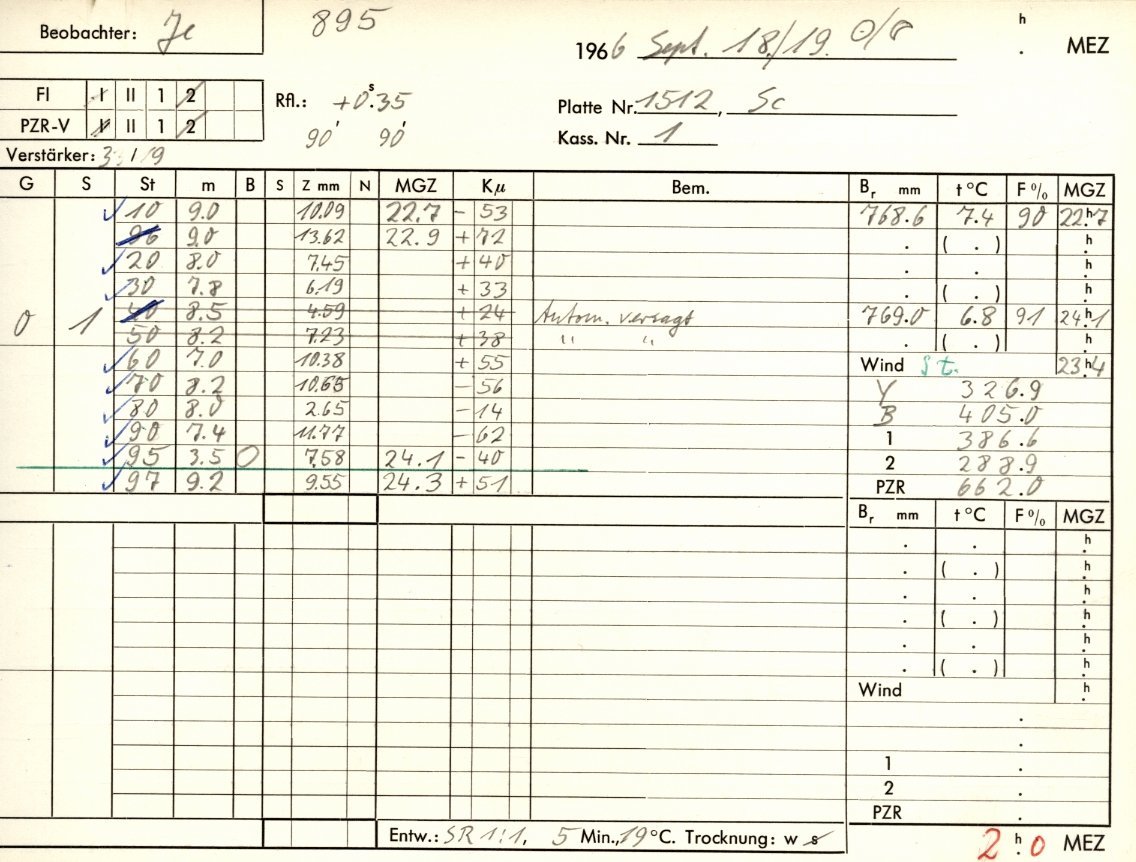 Beobachter: Je 895 h
1966 Sept. 18/19. . MEZ
FI I II 1 2
PZR-V I II 1 2
Rfl.: +0.s35
90' 90'
Platte Nr. 1512, Sc
Kass. Nr. 1
Verstärker: / 9
G S St m B S Z mm N MGZ Kµ Bem. Br mm t °C F % MGZ
10 9.0 10.09 22.7 - 53 768.6 7.4 90 22.h7
96 9.0 13.62 22.9 + 72 . ( . ) h.
20 8.0 7.45 + 40 . . h.
30 7.8 6.19 + 33 . ( . ) h.
0 1 40 8.5 4.59 + 24 Autom. versagt 769.0 6.8 91 24.h1
50 8.2 7.23 + 38 " " . ( . ) h.
60 7.0 10.38 + 55 Wind St. 23.h4
70 8.2 10.65 - 56 γ 326.9
80 8.0 2.65 - 14 B 405.0
90 7.4 11.77 - 62 1 386.6
95 3.5 O 7.58 24.1 - 40 2 288.9
97 9.2 9.55 24.3 + 51 PZR 662.0
Br mm t °C F % MGZ
. . h.
. ( . ) h.
. . h.
. ( . ) h.
. . h.
. ( . ) h.
Wind h.
.
.
1 .
2 .
PZR .
Entw.: SR 1:1, 5 Min., 19 °C. Trocknung: w s
2 h. 0 MEZ